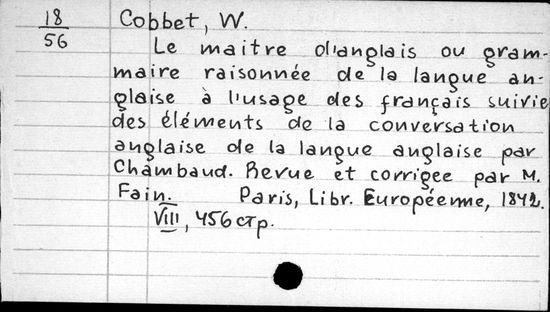 18 Cobbet, W.
56 Le maitre d'anglais ou gram-
maire raisonnée de la langue an-
glaise à l'usage des français suivie
des éléments de la conversation
anglaise de la langue anglaise par
Chambaud. Revue et corrigee par M.
Fain. Paris, Libr. Européenne, 1842.
VIII, 456 стр.